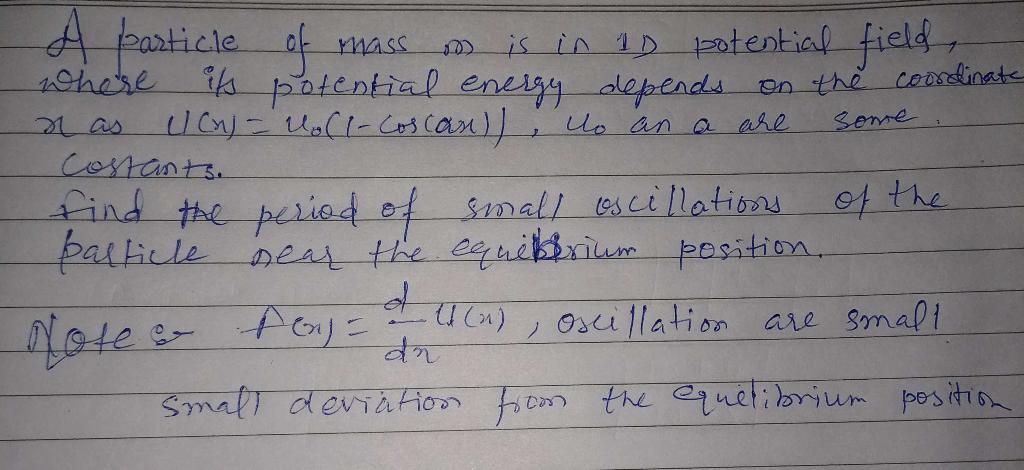 A particle of mass m is in 1D potential field,
where its potential energy depends on the coordinate
x as U(x) = U₀(1-cos(ax)), U₀ an a are some
costants.
find the period of small oscillations of the
particle near the equilibrium position.
Note :- F(x) = d/dx U(x), oscillation are small
small deviation from the equilibrium position